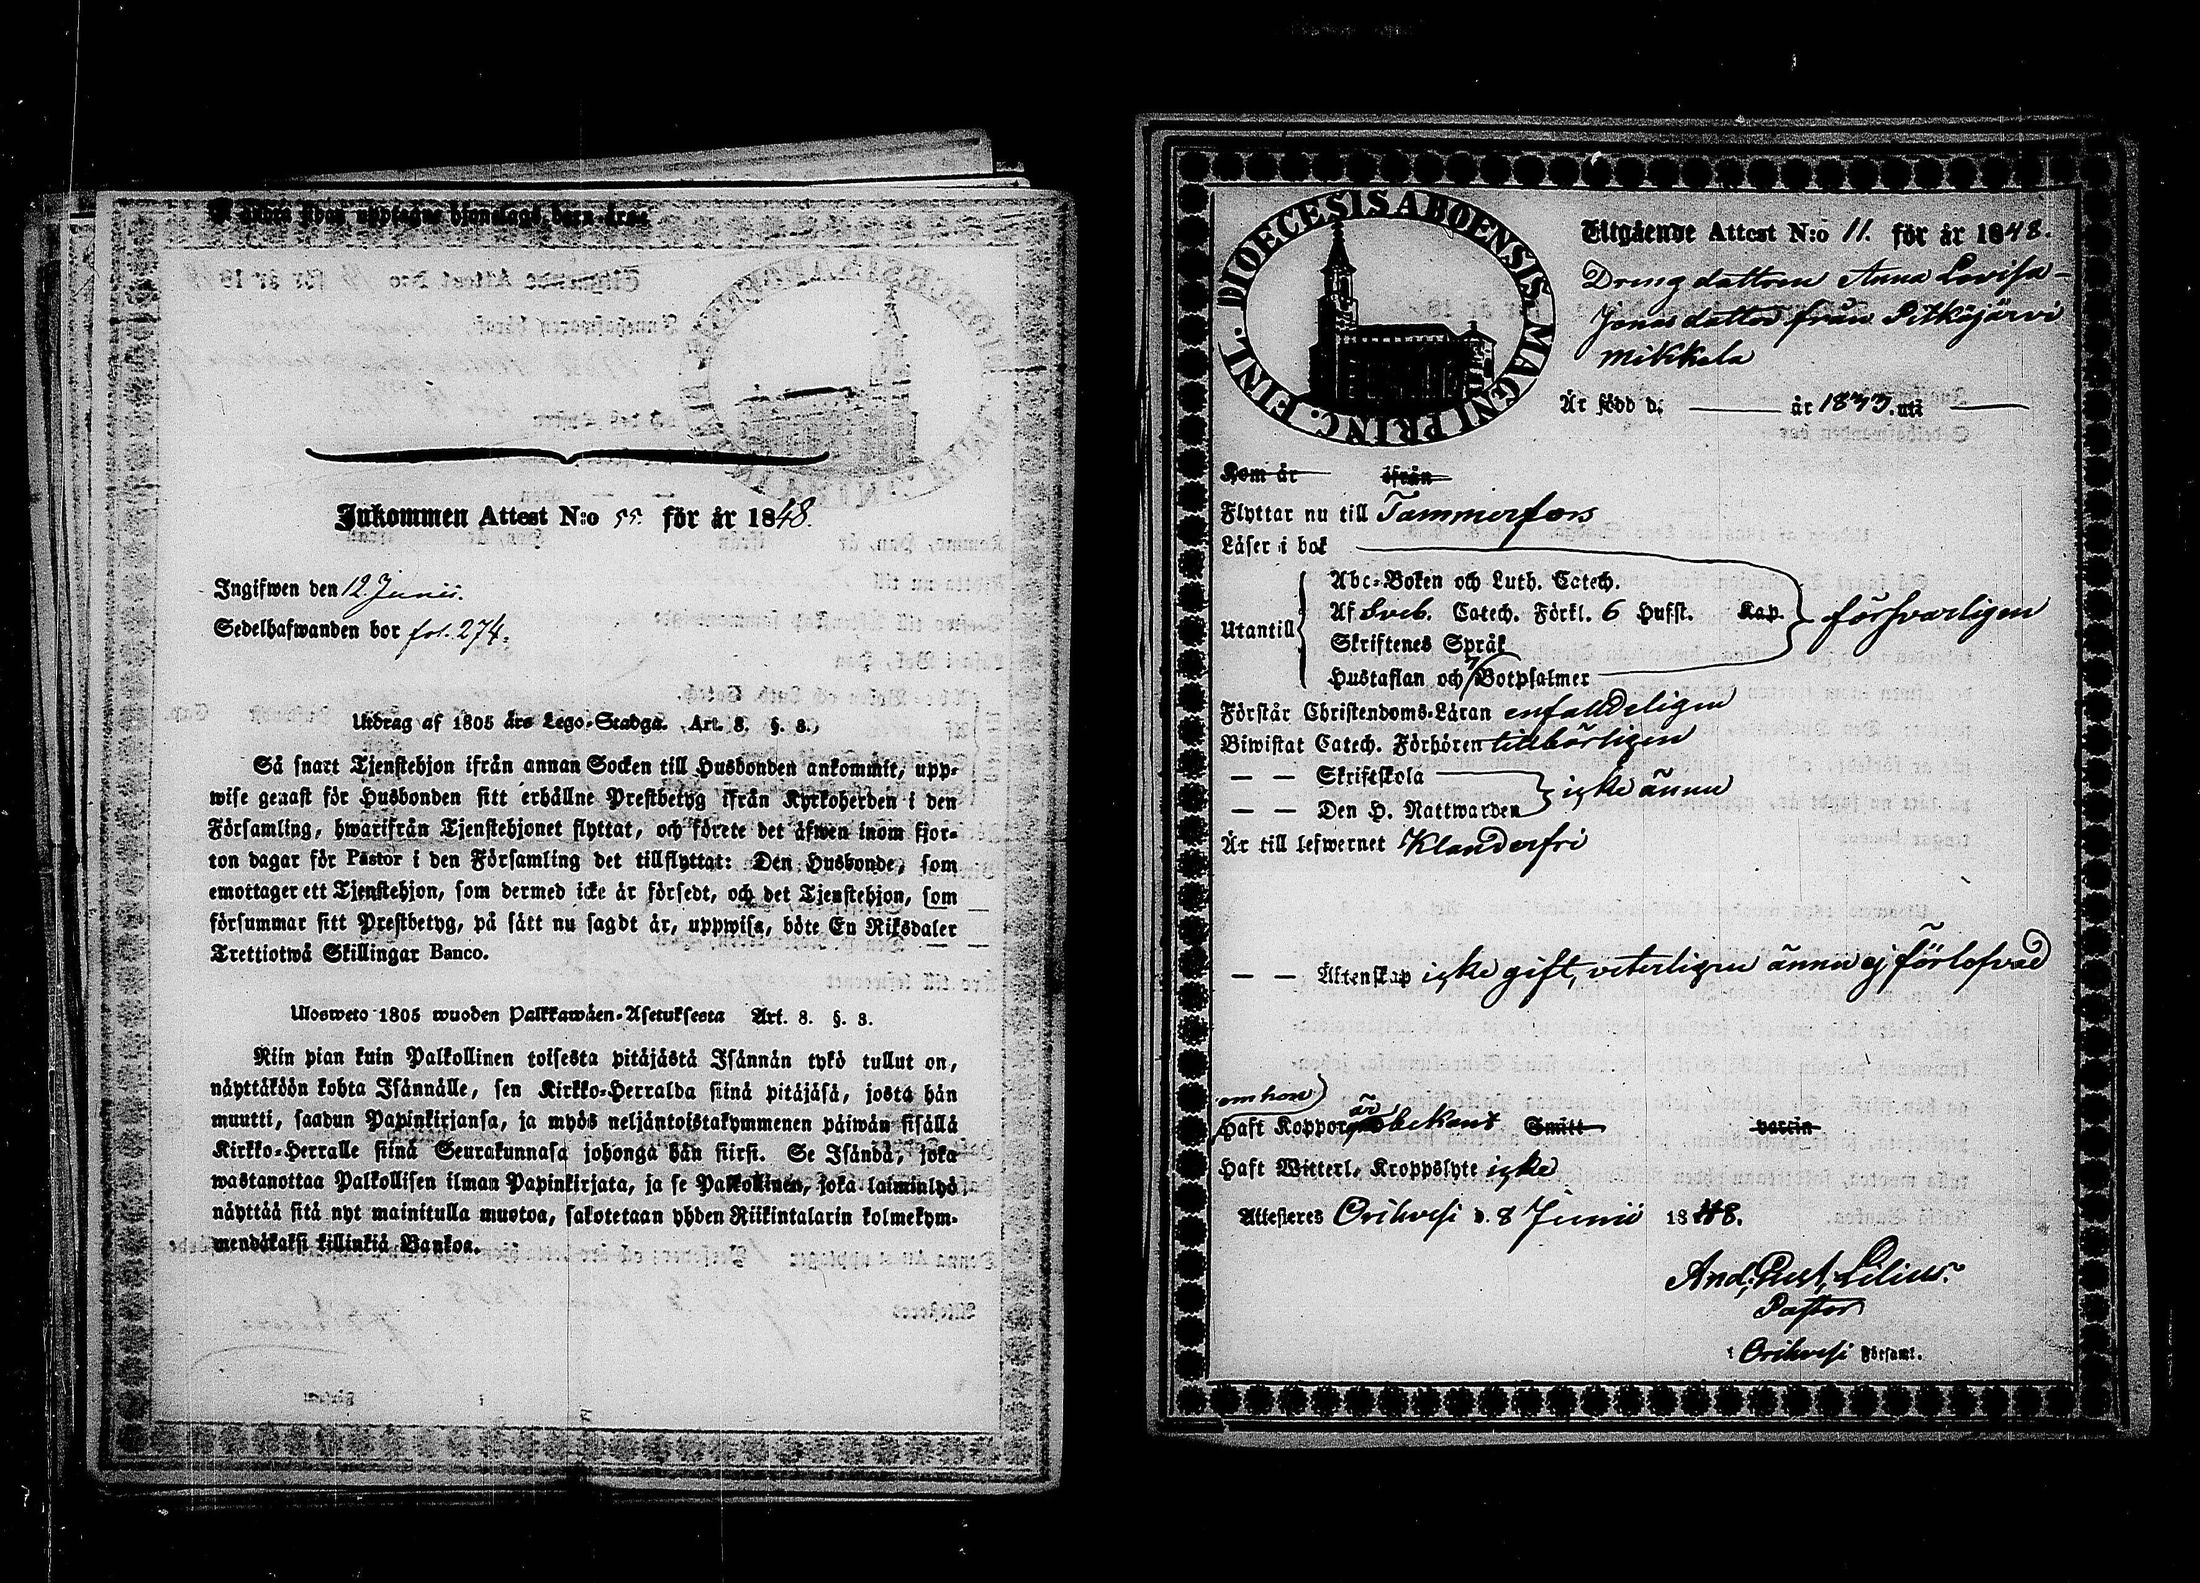 Inkommen Attest N:o 55. för år 1848.
Ingifwen den 12. Junii.
Sedelhafwanden bor fol. 274.
Utdrag af 1805 års Lego-Stadga. Art. 8. §. 3.
Så snart Tjenstehjon ifrån annan Socken till Husbonden ankommit, upp-
wise genast för Husbonden sitt erhållne Prestbetyg ifrån Kyrkoherden i den
Församling, hwarifrån Tjenstehjonet flyttat, och förete det äfwen inom fjor-
ton dagar för Pastor i den Församling det tillflyttat: Den Husbonde, som
emottager ett Tjenstehjon, som dermed icke är försedt, och det Tjenstehjon, som
försummar sitt Prestbetyg, på sätt nu sagdt är, uppwisa, böte En Riksdaler
Trettiotwå Skillingar Banco.
Ulosweto 1805 wuoden Palkkawäen-Asetuksesta Art. 8. §. 3.
Niin pian kuin Palkollinen toisesta pitäjästä Isännän tykö tullut on,
näyttäköön kohta Isännälle, sen Kirkko-Herralda siinä pitäjäsä, josta hän
muutti, saadun Papinkirjansa, ja myös neljäntoistakymmenen päiwän sisällä
Kirkko-Herralle siinä Seurakunnasa johonga hän siirsi. Se Isändä, joka
wastanottaa Palkollisen ilman Papinkirjata, ja se Palkollinen, joka laiminlyö
näyttää sitä nyt mainitulla muotoa, sakotetaan yhden Riikintalarin kolmekym-
mendäkaksi killinkiä Bankoa.
DIOECESIS ABOENSIS MAGNI PRINC. FINL.
Utgående Attest N:o 11. för år 1848.
Dreng dottren Anna Lovisa
Jonas dotter från Pitkäjärvi
Mikkola
Är född d. år 1833. uti
Kom år ifrån
Flyttar nu till Tammerfors
Läser i bok
Abc-Boken och Luth. Catech.
Utantill Af Sveb. Catech. Förkl. 6 Hufst. Kap. försvarligen
Skriftenes Språk
Hustaflan och 7 Botpsalmer
Förstår Christendoms-Läran enfalldeligen
Biwistat Catech. Förhören tillbörligen
— — Skriftskola
— — Den H. Nattwarden icke ännu
Är till lefwernet Klanderfri
— — Äktenskap icke gift, veterligen ännu ej förlofvad
om hon
Haft Koppor är obekant Smitt vaccin
Haft Witterl. Kroppslyte icke
Attesteres Orihvesi d. 8 Junii 1848.
And. Gust. Lilius.
Pastor
i Orihvesi Församl.